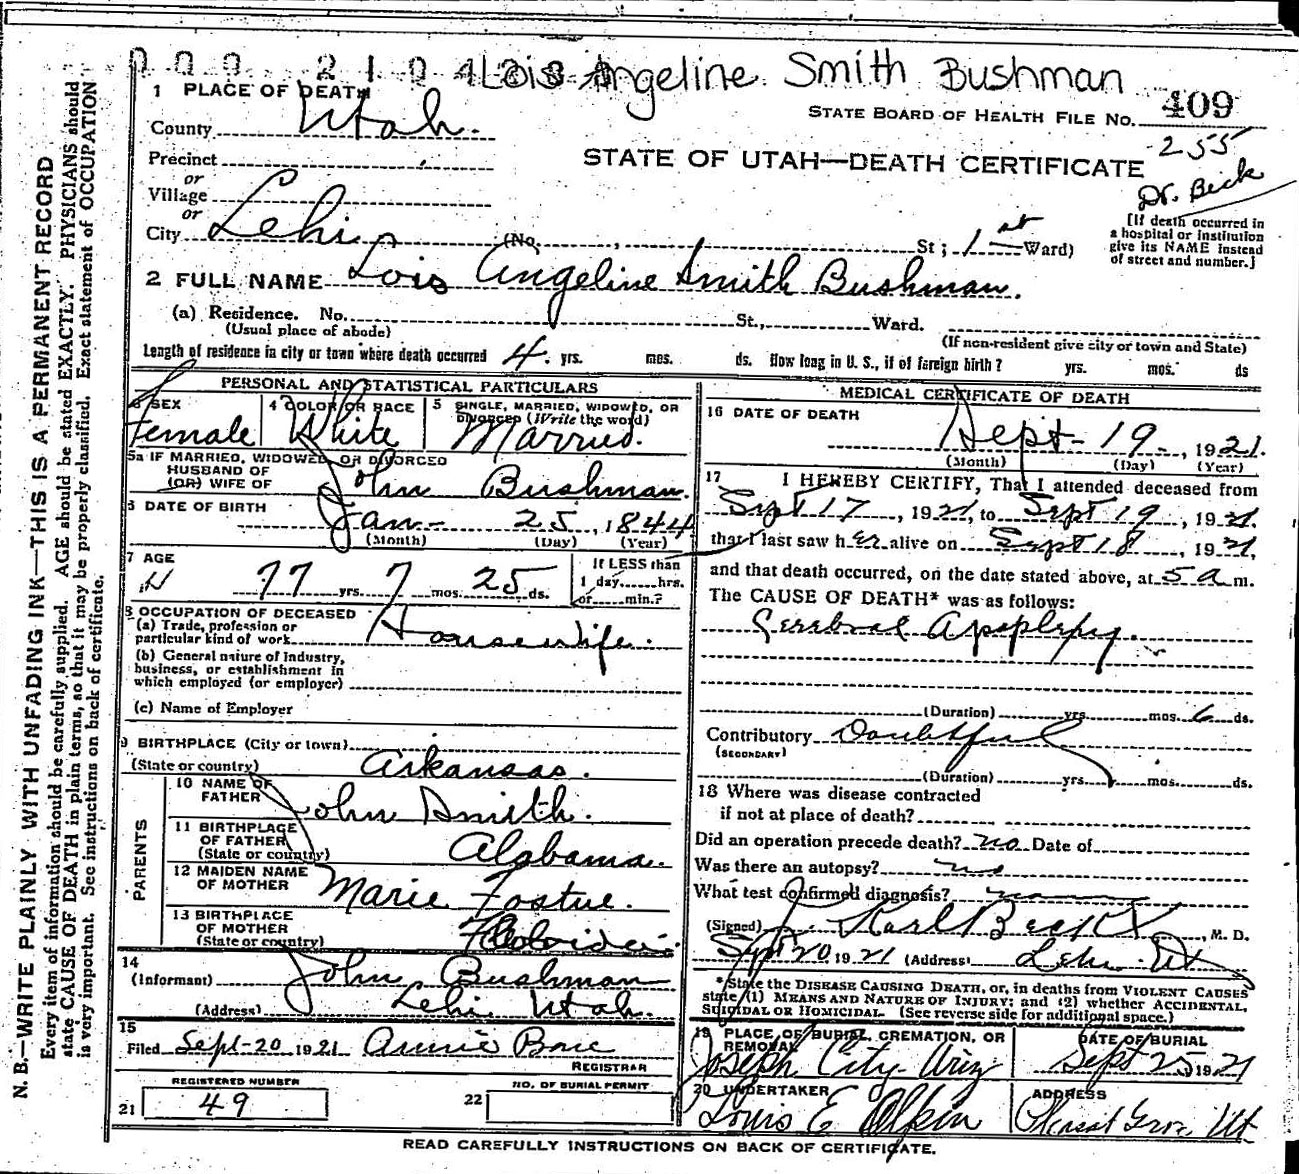 Lois Angeline Smith Bushman
1 PLACE OF DEATH
County Utah.
STATE BOARD OF HEALTH FILE NO. 409
255
Precinct
or
STATE OF UTAH—DEATH CERTIFICATE
Dr. Beck
Village
or
City Lehi (No. , St; 1st Ward)
[If death occurred in
a hospital or institution
give its NAME instead
of street and number.]
2 FULL NAME Lois Angeline Smith Bushman.
(a) Residence. No. St., Ward.
(Usual place of abode)
(If non-resident give city or town and State)
Length of residence in city or town where death occurred 4 yrs. mos. ds. How long in U. S., if of foreign birth? yrs. mos. ds
PERSONAL AND STATISTICAL PARTICULARS
3 SEX
Female
4 COLOR OR RACE
White
5 SINGLE, MARRIED, WIDOWED, OR
DIVORCED (Write the word)
Married.
5a IF MARRIED, WIDOWED, OR DIVORCED
HUSBAND OF
(OR) WIFE OF John Bushman.
6 DATE OF BIRTH Jan- 25, 1844
(Month) (Day) (Year)
7 AGE
77 yrs. 7 mos. 25 ds.
If LESS than
1 day......hrs.
or......min.?
8 OCCUPATION OF DECEASED
(a) Trade, profession or
particular kind of work Housewife.
(b) General nature of Industry,
business, or establishment in
which employed (or employer)
(c) Name of Employer
9 BIRTHPLACE (City or town)
(State or country) Arkansas.
PARENTS
10 NAME OF
FATHER John Smith.
11 BIRTHPLACE
OF FATHER
(State or country) Alabama.
12 MAIDEN NAME
OF MOTHER Marie
13 BIRTHPLACE
OF MOTHER
(State or country)
14
(Informant) John Bushman
(Address) Lehi Utah.
15
Filed Sept-20 1921 Annie
REGISTRAR
REGISTERED NUMBER
21 49
NO. OF BURIAL PERMIT
22
MEDICAL CERTIFICATE OF DEATH
16 DATE OF DEATH
Sept- 19-, 1921.
(Month) (Day) (Year)
17 I HEREBY CERTIFY, That I attended deceased from
Sept 17, 1921, to Sept 19, 1921.
that I last saw her alive on Sept 18, 1921,
and that death occurred, on the date stated above, at 5 a m.
The CAUSE OF DEATH* was as follows:
Cerebral Apoplexy.
(Duration) yrs. mos. 6 ds.
Contributory Doubtful
(SECONDARY)
(Duration) yrs. mos. ds.
18 Where was disease contracted
if not at place of death?
Did an operation precede death? no Date of
Was there an autopsy? no
What test confirmed diagnosis?
(Signed) Karl Beck, M. D.
Sept 20 1921 (Address) Lehi Ut
* State the DISEASE CAUSING DEATH, or, in deaths from VIOLENT CAUSES
state (1) MEANS AND NATURE OF INJURY; and (2) whether ACCIDENTAL,
SUICIDAL OR HOMICIDAL. (See reverse side for additional space.)
19 PLACE OF BURIAL, CREMATION, OR
REMOVAL
Joseph City Ariz
DATE OF BURIAL
Sept 25 1921
20 UNDERTAKER
Louis E
ADDRESS
Pleasant Grove Ut
READ CAREFULLY INSTRUCTIONS ON BACK OF CERTIFICATE.
N. B.—WRITE PLAINLY WITH UNFADING INK—THIS IS A PERMANENT RECORD
Every item of information should be carefully supplied. AGE should be stated EXACTLY. PHYSICIANS should
state CAUSE OF DEATH in plain terms, so that it may be properly classified. Exact statement of OCCUPATION
is very important. See instructions on back of certificate.